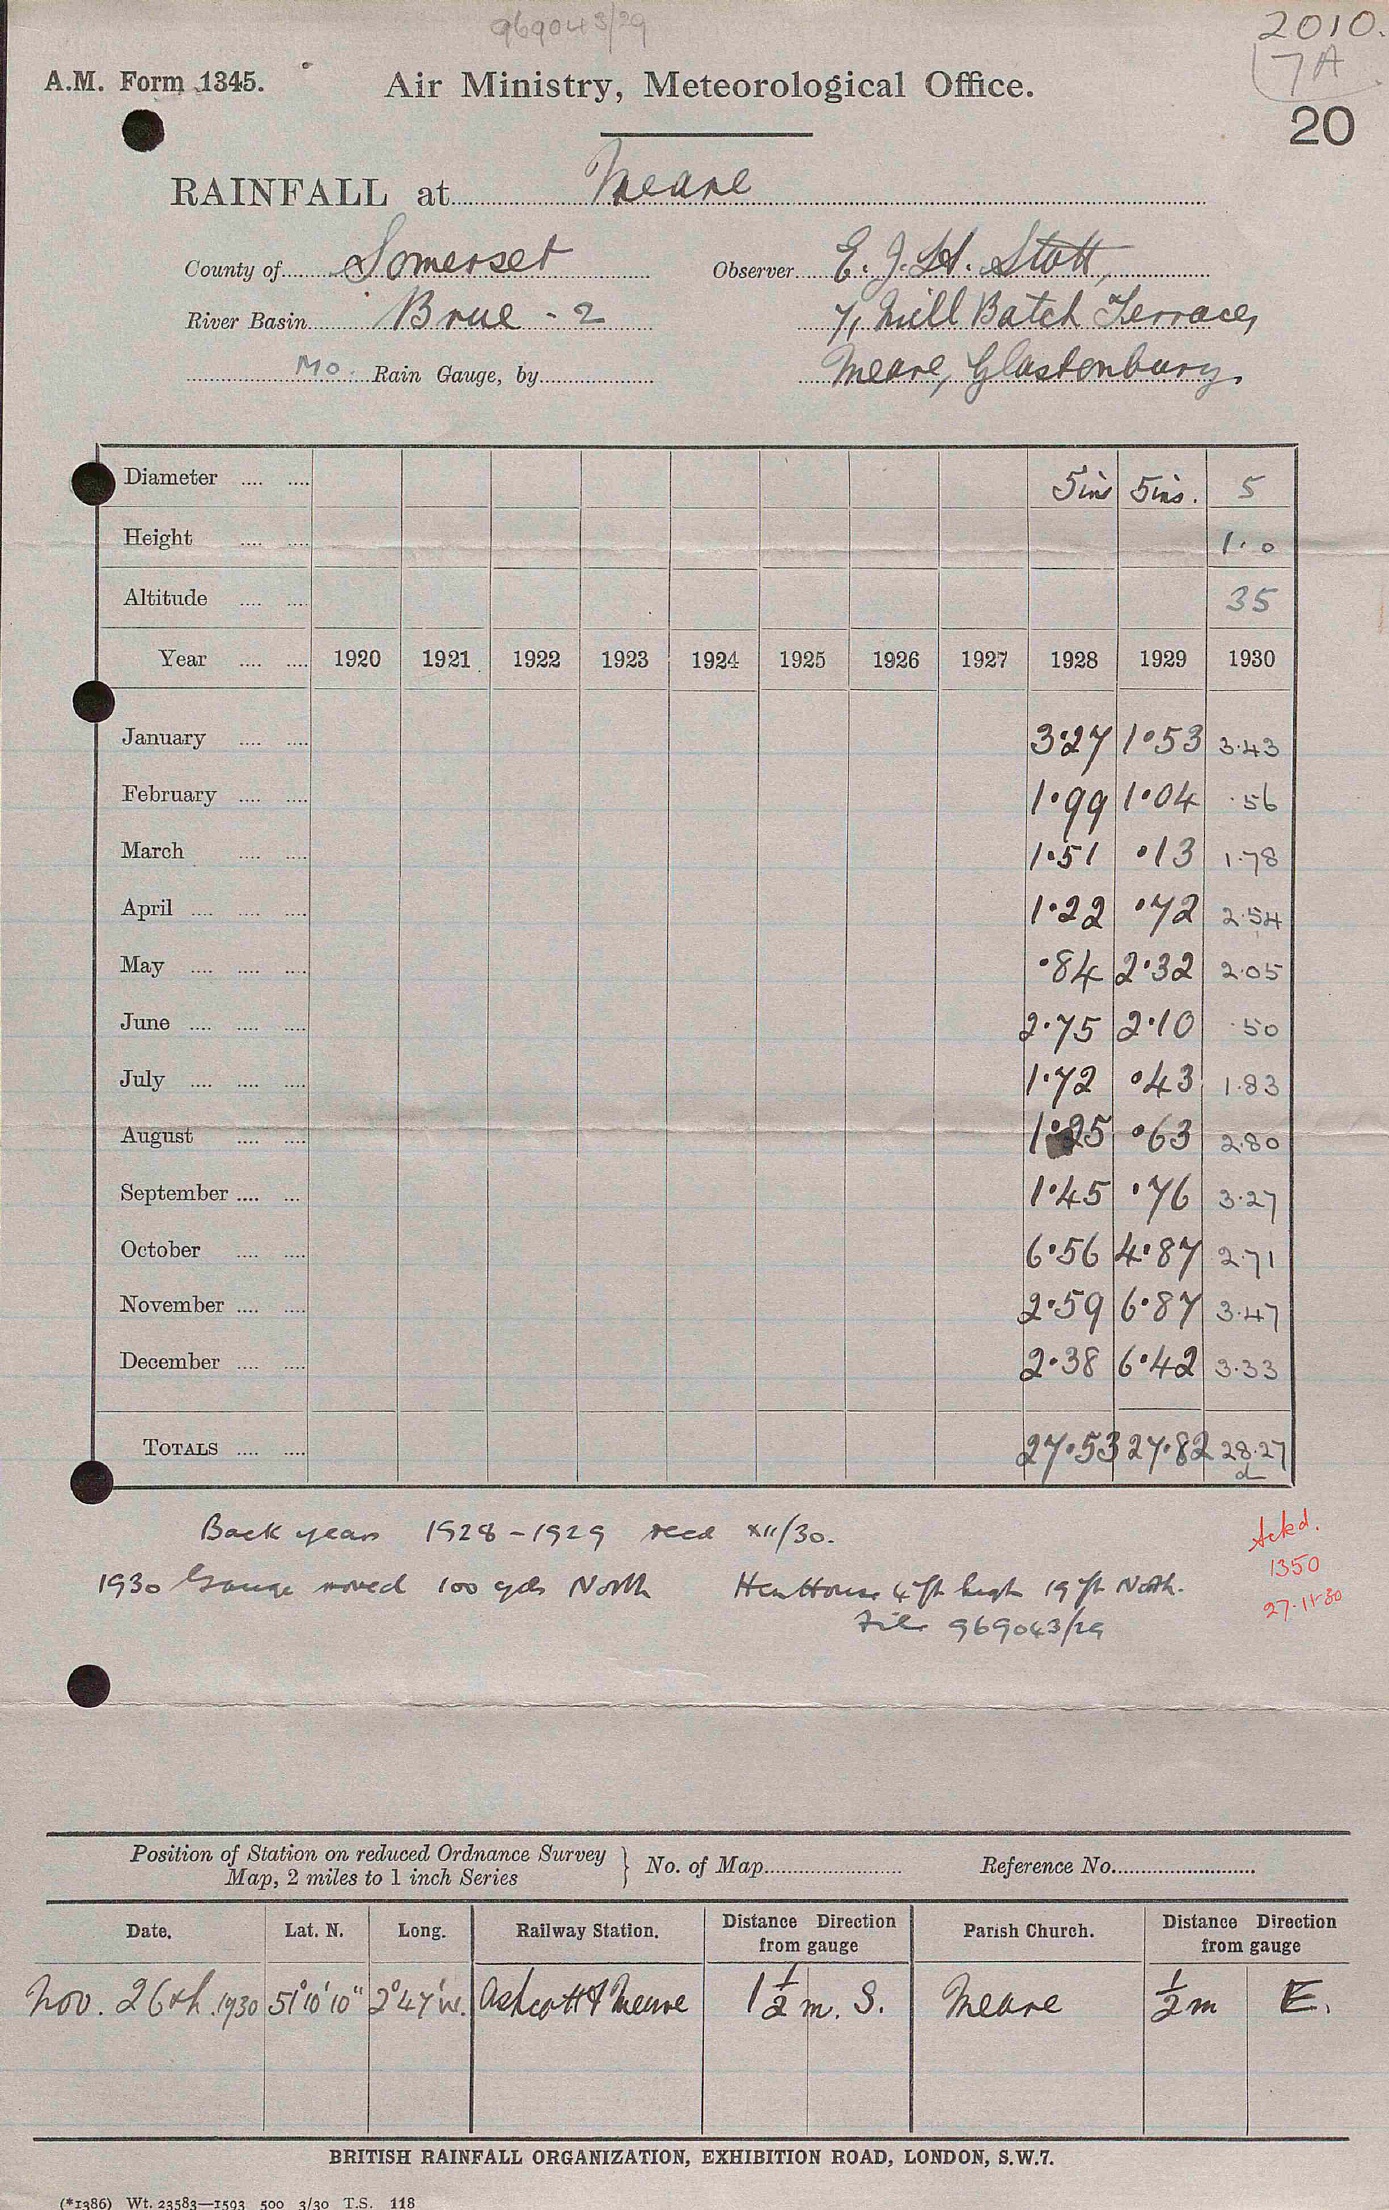 969043/29
2010.
7A
A.M. Form 1345. Air Ministry, Meteorological Office.
20
RAINFALL at Meare
County of Somerset Observer E. J. H. Stott,
River Basin Brue - 2 7, Mill Batch Terrace,
MO. Rain Gauge, by Meare, Glastonbury.
Diameter .... .... 5ins 5ins. 5
Height .... .... 1.0
Altitude .... .... 35
Year .... .... 1920 1921 1922 1923 1924 1925 1926 1927 1928 1929 1930
January .... .... 3·27 1·53 3·43
February .... .... 1·99 1·04 ·56
March .... .... 1·51 ·13 1·78
April .... .... .... 1·22 ·72 2·54
May .... .... .... ·84 2·32 2·05
June .... .... .... 2·75 2·10 ·50
July .... .... .... 1·72 ·43 1·83
August .... .... 1·25 ·63 2·80
September .... ... 1·45 ·76 3·27
October .... .... 6·56 4·87 2·71
November .... .... 2·59 6·87 3·47
December .... .... 2·38 6·42 3·33
TOTALS .... .... 27·53 27·82 28·27
d
Back years 1928-1929 recd XII/30.
1930 Gauge moved 100 yds North Hen House 4 ft high 19 ft North.
File 969043/29
Ackd.
1350
27·11·30
Position of Station on reduced Ordnance Survey
Map, 2 miles to 1 inch Series } No. of Map Reference No.
Date. Lat. N. Long. Railway Station. Distance Direction from gauge Parish Church. Distance Direction from gauge
Nov. 26th. 1930 51°10'10" 2°47'W. Ashcott & Meare 1½ m. S. Meare ½ m E.
BRITISH RAINFALL ORGANIZATION, EXHIBITION ROAD, LONDON, S.W.7.
(*1386) Wt. 23583—1593 500 3/30 T.S. 118